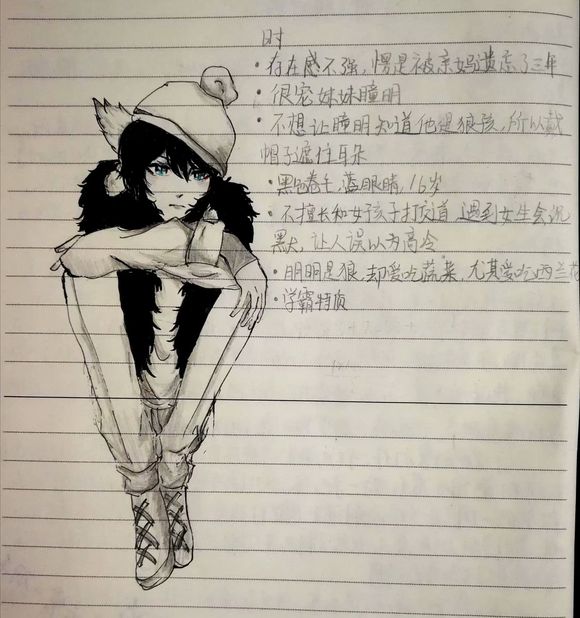 时
·存在感不强，愣是被亲妈遗忘了三年
·很宠妹妹瞳明
·不想让瞳明知道他是狼孩，所以戴
帽子遮住耳朵
·黑色卷毛，蓝眼睛，16岁
·不擅长和女孩子打交道，遇到女生会沉
默，让人误以为高冷
·明明是狼，却爱吃蔬菜，尤其爱吃西兰花
·学霸特质